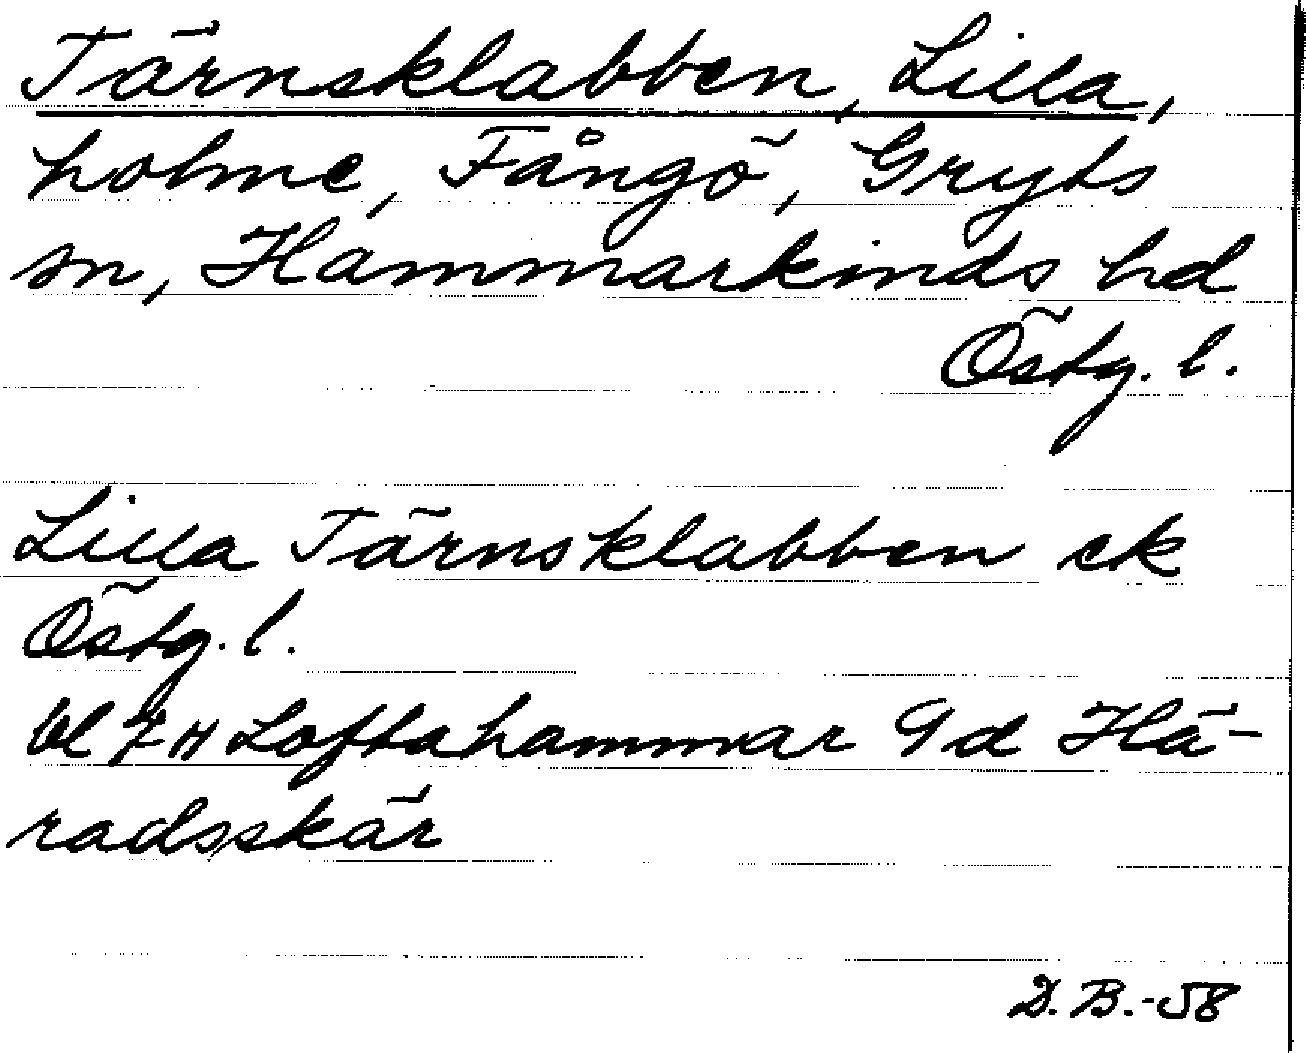 Tärnsklabben, Lilla,
holme, Fångö, Gryts
sn, Hammarkinds hd
Östg. l.
Lilla Tärnsklabben ek
Östg. l.
bl 7 H Loftahammar 9d Hä-
radsskär
D. B. -58